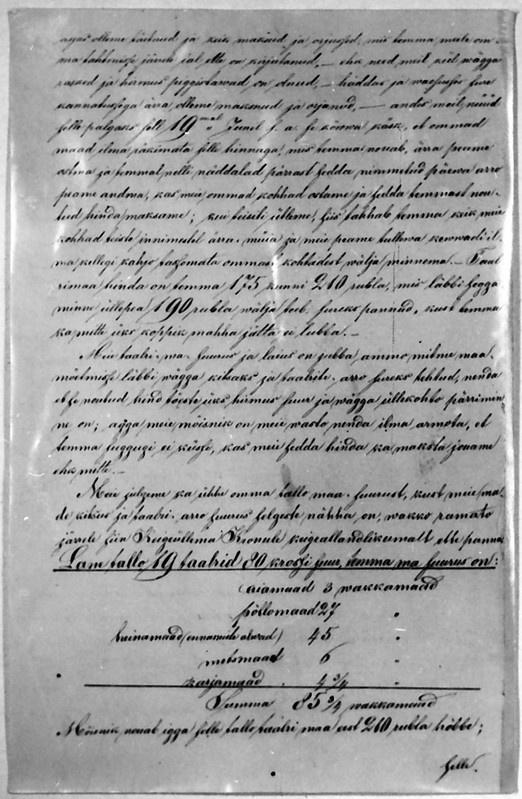 asjas olleme täitnud ja keik maksud ja orjussed, mis temma meile om-
ma tahtmisse järele eal ette on kirjutanud, — ehk need meil küll wägga
rasked ja hirmus piggistawad on olnud, — häddas ja waesusses sure
kannatussega ära olleme maksnud ja orjanud, — andis meil nüüd
selle palgaks sell 19mal Junil s. a. se kõwwa käsk, et ommad
maad ilma räkimata selle hinnaga, mis temma nouab, ärra peame
ostma ja temmal nelli näddalad pärrast sedda nimmetud päewa arro
peame andma, kas meie ommad kohhad ostame ja sedda temmast nou-
tud hinda maksame; kui teiseti ütleme, siis tahhab temma keik meie
kohhad teiste innimestel ärra müia ja meie peame tullewa kewwadi il-
ma kellegi kahjo tassomata ommast kohtadest wälja minnema. — Taal-
rimaa hinda on temma 175 kunni 210 rubla, mis läbbi segga
minnes üllepea 190 rubla wälja teeb, sureks pannud, kust temma
ka mitte üks koppik mahha jätta ei lubba. —
Meie taalri-ma suurus ja laius on jubba ammo mitme maa
mõetmisse läbbi wägga kitsaks ja taalrite-arro sureks tehtud, nenda
et se noutud hind tõeste üks hirmus suur ja wägga üllekohto pärrimin-
ne on; agga meie mõisnik on meie wasto nenda ilma armota, et
temma suggugi ei küssi, kas meie sedda hinda ka maksta jouame
ehk mitte. —
Meie julgeme ka ühhe omma tallo maa-suurust, kust meie ma-
de kitsus ja taalri-arro suurus selgeste nähha on, wakko ramato
järele siia Keigeüllema Troonile keigeallandlikumalt ette panna
Sam tallo 19 taalrid 80 krossi suur, temma ma suurus on:
aiamaad 3 wakkamaad
põllomaad 27 "
heinamaad (ennamiste alwad) 45 "
metsmaad 6 "
karjamaad . 4 3/4 "
Summa 85 3/4 wakkamaad
Mõisnik nouab igga selle tallo taalri maa eest 210 rubla hõbbe;
selle